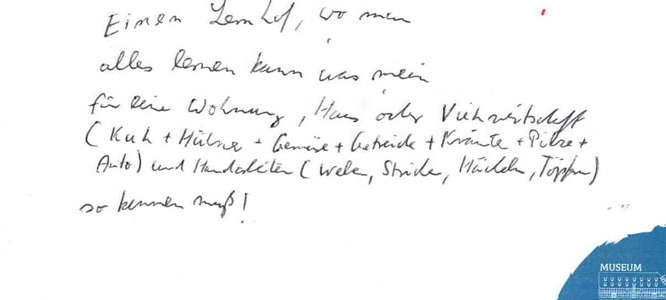 Einen Lernhof, wo man
alles lernen kann was mein
für eine Wohnung, Haus oder Viehwirtschaft
(Kuh + Hühner + Gemüse + Getreide + Kräuter + Pilze +
Auto) und Handarbeiten (Weben, Stricken, Häckeln, Töpfern)
so kennen muß!
MUSEUM